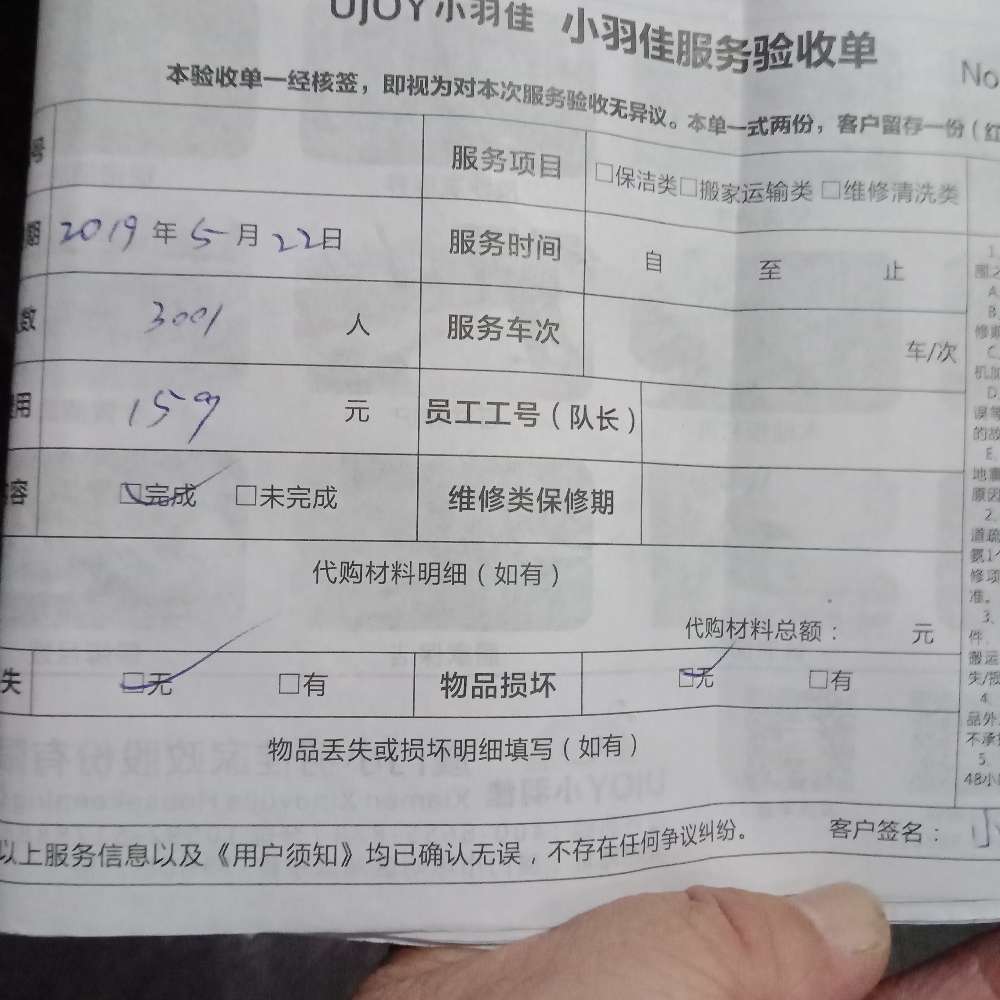 UJOY小羽佳 小羽佳服务验收单
No
本验收单一经核签，即视为对本次服务验收无异议。本单一式两份，客户留存一份（红
号 服务项目 □保洁类□搬家运输类 □维修清洗类
期 2019年5月22日 服务时间 自 至 止
数 3001 人 服务车次 车/次
用 159 元 员工工号（队长）
容 ☑完成 □未完成 维修类保修期
代购材料明细（如有）
代购材料总额： 元
失 ☑无 □有 物品损坏 ☑无 □有
物品丢失或损坏明细填写（如有）
以上服务信息以及《用户须知》均已确认无误，不存在任何争议纠纷。 客户签名：
1.
围之
A
B
修
C
机加
D
误等
的故
E、
地
原因
2、
道疏
氨1个
修项
准。
3、
件、
搬运
失/损
4
品外
不承担
5、
48小